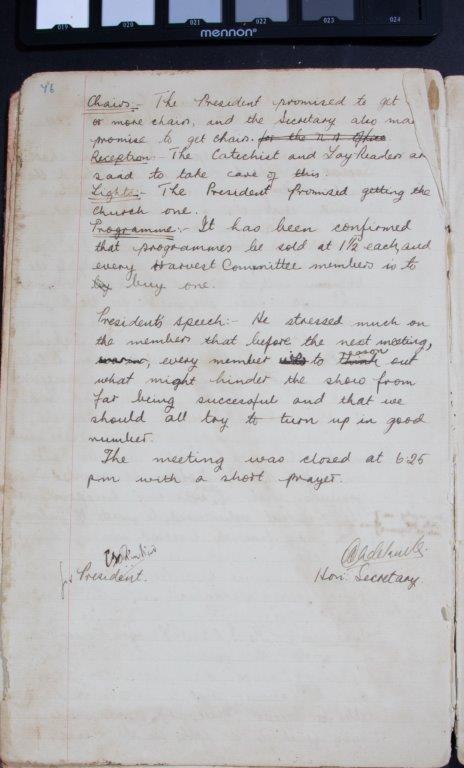 019 020 021 022 023 024
mennon
46
Chairs:- The President promised to get
or more chairs, and the secretary also ma
promise to get chairs. for the N A Office
Reception:- The Catechist and Lay Readers ar
said to take care of this
Lights:- The President Promised getting the
church one.
Programme:- It has been confirmed
that programmes be sold at 1½ each, and
every Harvest Committee members is to
by buy one.
President's speech:- He stressed much on
the members that before the next meeting,
every member is to reason out
what might hinder the show from
far being successful and that we
should all try to turn up in good
number.
The meeting was closed at 6.25
p.m with a short prayer.
for President.
Hon: Secretary.